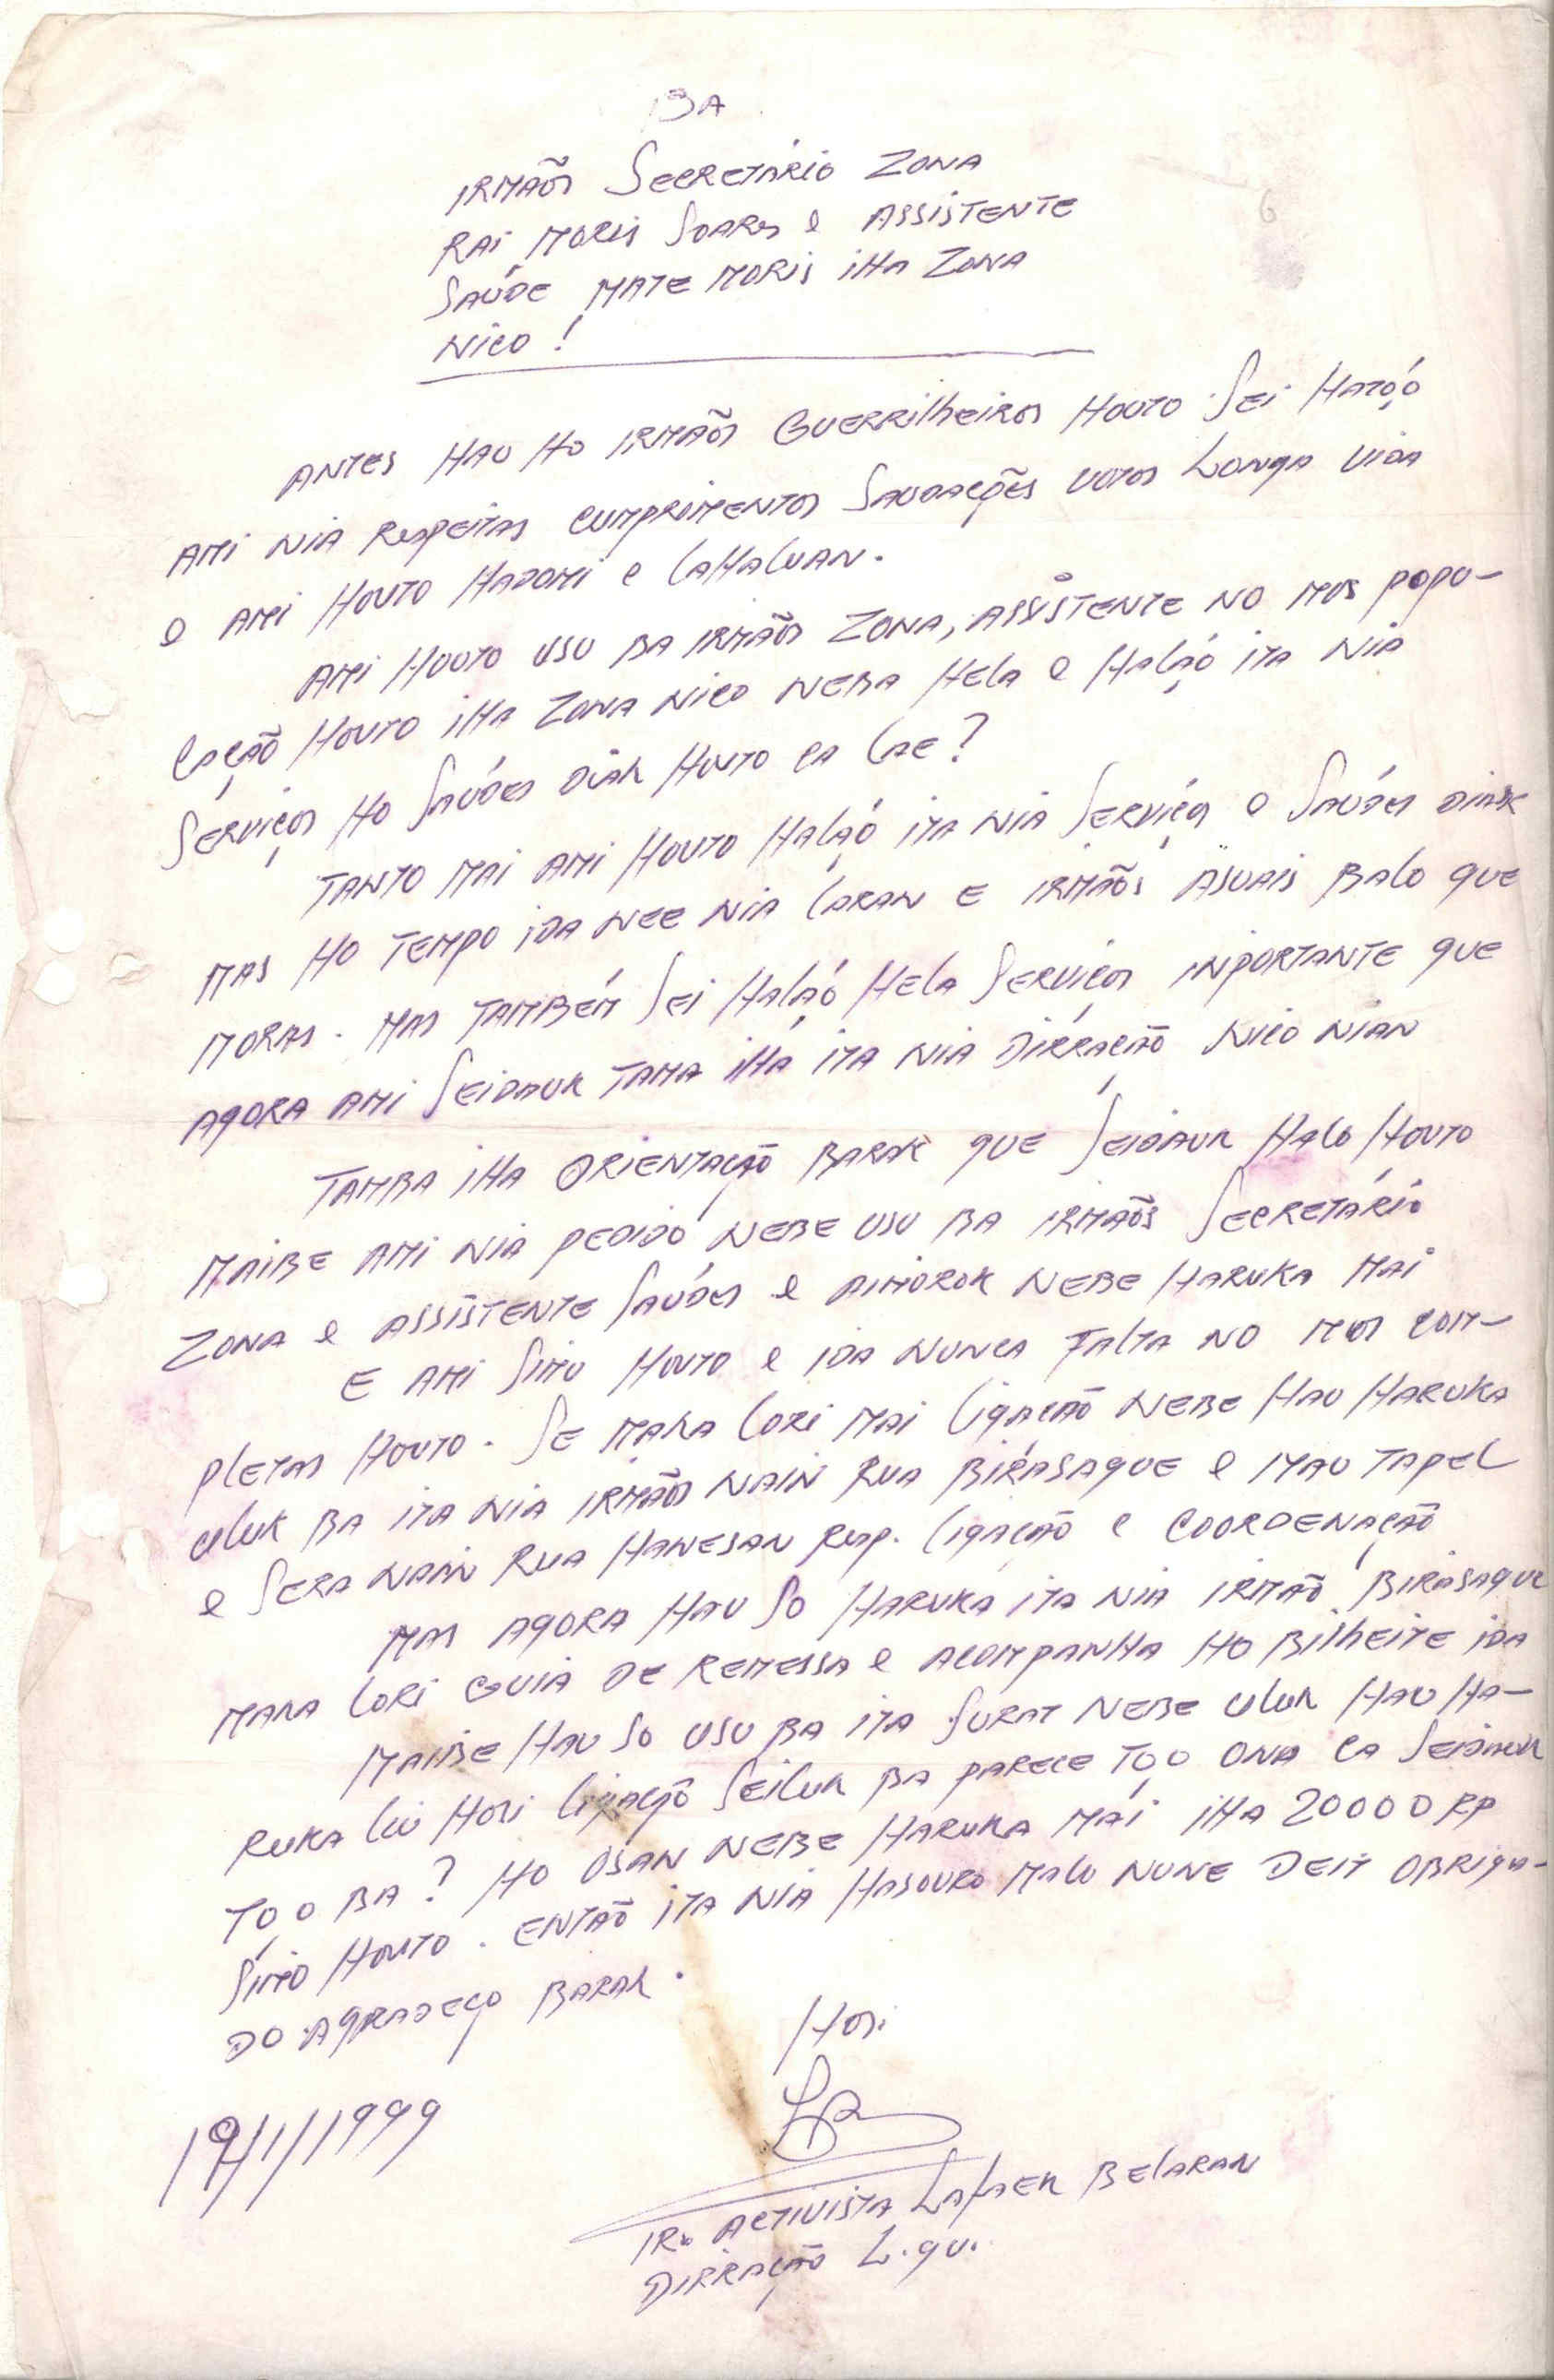 BA
IRMÃOS SECRETÁRIO ZONA
RAI MORIS SOARES e ASSISTENTE
SAÚDE MATE MORIS IHA ZONA
NICO!
6
ANTES HAU HO IRMÃOS GUERRILHEIROS HOUTO SEI HATO,O
AMI NIA RESPEITAS CUMPRIMENTOS SAUDAÇÕES VOTOS LONGA VIDA
e AMI HOUTO HADOMI e LAHALUAN.
AMI HOUTO USU BA IRMÃOS ZONA, ASSISTENTE NO MOS POPU-
LAÇÃO HOUTO IHA ZONA NICO NEBA HELA e HALA,O ITA NIA
SERVIÇOS HO SAÚDES DIAK HOUTO CA LAE?
TANTO MAI AMI HOUTO HALA,O ITA NIA SERVIÇOS e SAÚDES DIAK
MAS HO TEMPO IDA NEE NIA LARAN E IRMÃOS ASUAIS BALO QUE
MORAS. MAS TAMBÉM SEI HALA,O HELA SERVIÇOS INPORTANTE QUE
AGORA AMI SEIDAUK TAMA IHA ITA NIA DIRRAÇÃO NICO NIAN
TAMBA IHA ORIENTAÇÃO BARAK QUE SEIDAUK HALO HOUTO
MAIBE AMI NIA PEDIDO NEBE USU BA IRMÃOS SECRETÁRIO
ZONA e ASSISTENTE SAÚDES e AIMOROK NEBE HARUKA MAI
E AMI SIMU HOUTO e IDA NUNCA FALTA NO MOS COM-
PLETAS HOUTO. SE MAKA LORI MAI LIGAÇÃO NEBE HAU HARUKA
ULUK BA ITA NIA IRMÃOS NAIN RUA BIRASAQUE e MAU TAPEL
e SERA NAIN RUA HANESAN RESP. LIGAÇÃO e COORDENAÇÃO
MAS AGORA HAU SO HARUKA ITA NIA IRMÃO BIRASAQUE
MAKA LORI GUIA DE REMESSA e ACOMPANHA HO BILHEITE IDA
MAIBE HAU SO USU BA ITA SURAT NEBE ULUK HAU HA-
RUKA LIU HOSI LIGAÇÃO SEILUK BA PARECE TO,O ONA CA SEIDAUK
TO,O BA? HO OSAN NEBE HARUKA MAI IHA 20000 RP
SIMO HOUTO. ENTÃO ITA NIA HASOURO MALO NUNE DEIT OBRIGA-
DO AGRADEÇO BARAK.
HOSI
19/1/1999
IR. ACTIVISTA LAFAEK BELARAN
DIRRAÇÃO L.QU.